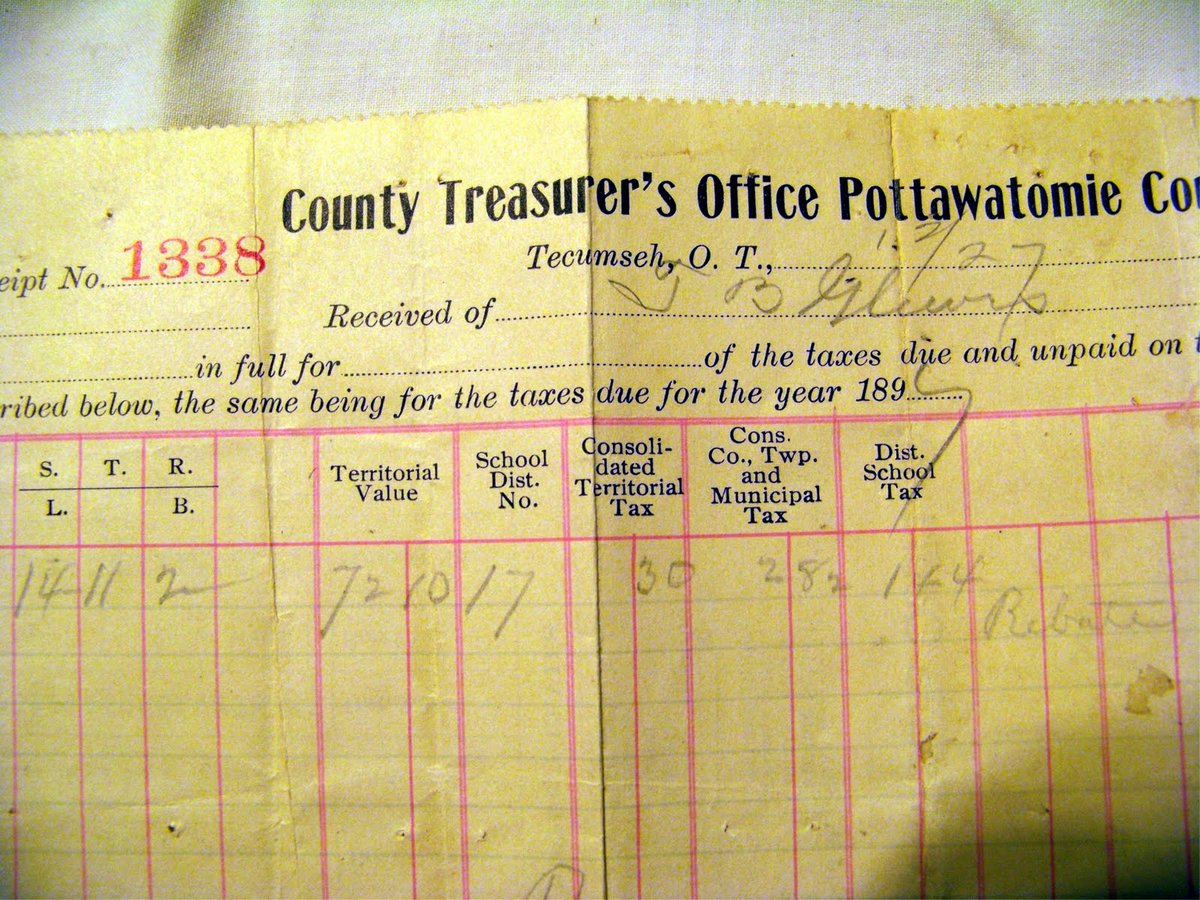 County Treasurer's Office Pottawatomie Cou
eipt No. 1338
Tecumseh, O. T., 12/27
Received of J B
in full for of the taxes due and unpaid on t
ribed below, the same being for the taxes due for the year 1897
S. T. R.
L. B.
Territorial Value
School Dist. No.
Consoli-dated Territorial Tax
Cons. Co., Twp. and Municipal Tax
Dist. School Tax
14 11 2 72 10 17 30 2 82 1 44
Rebate